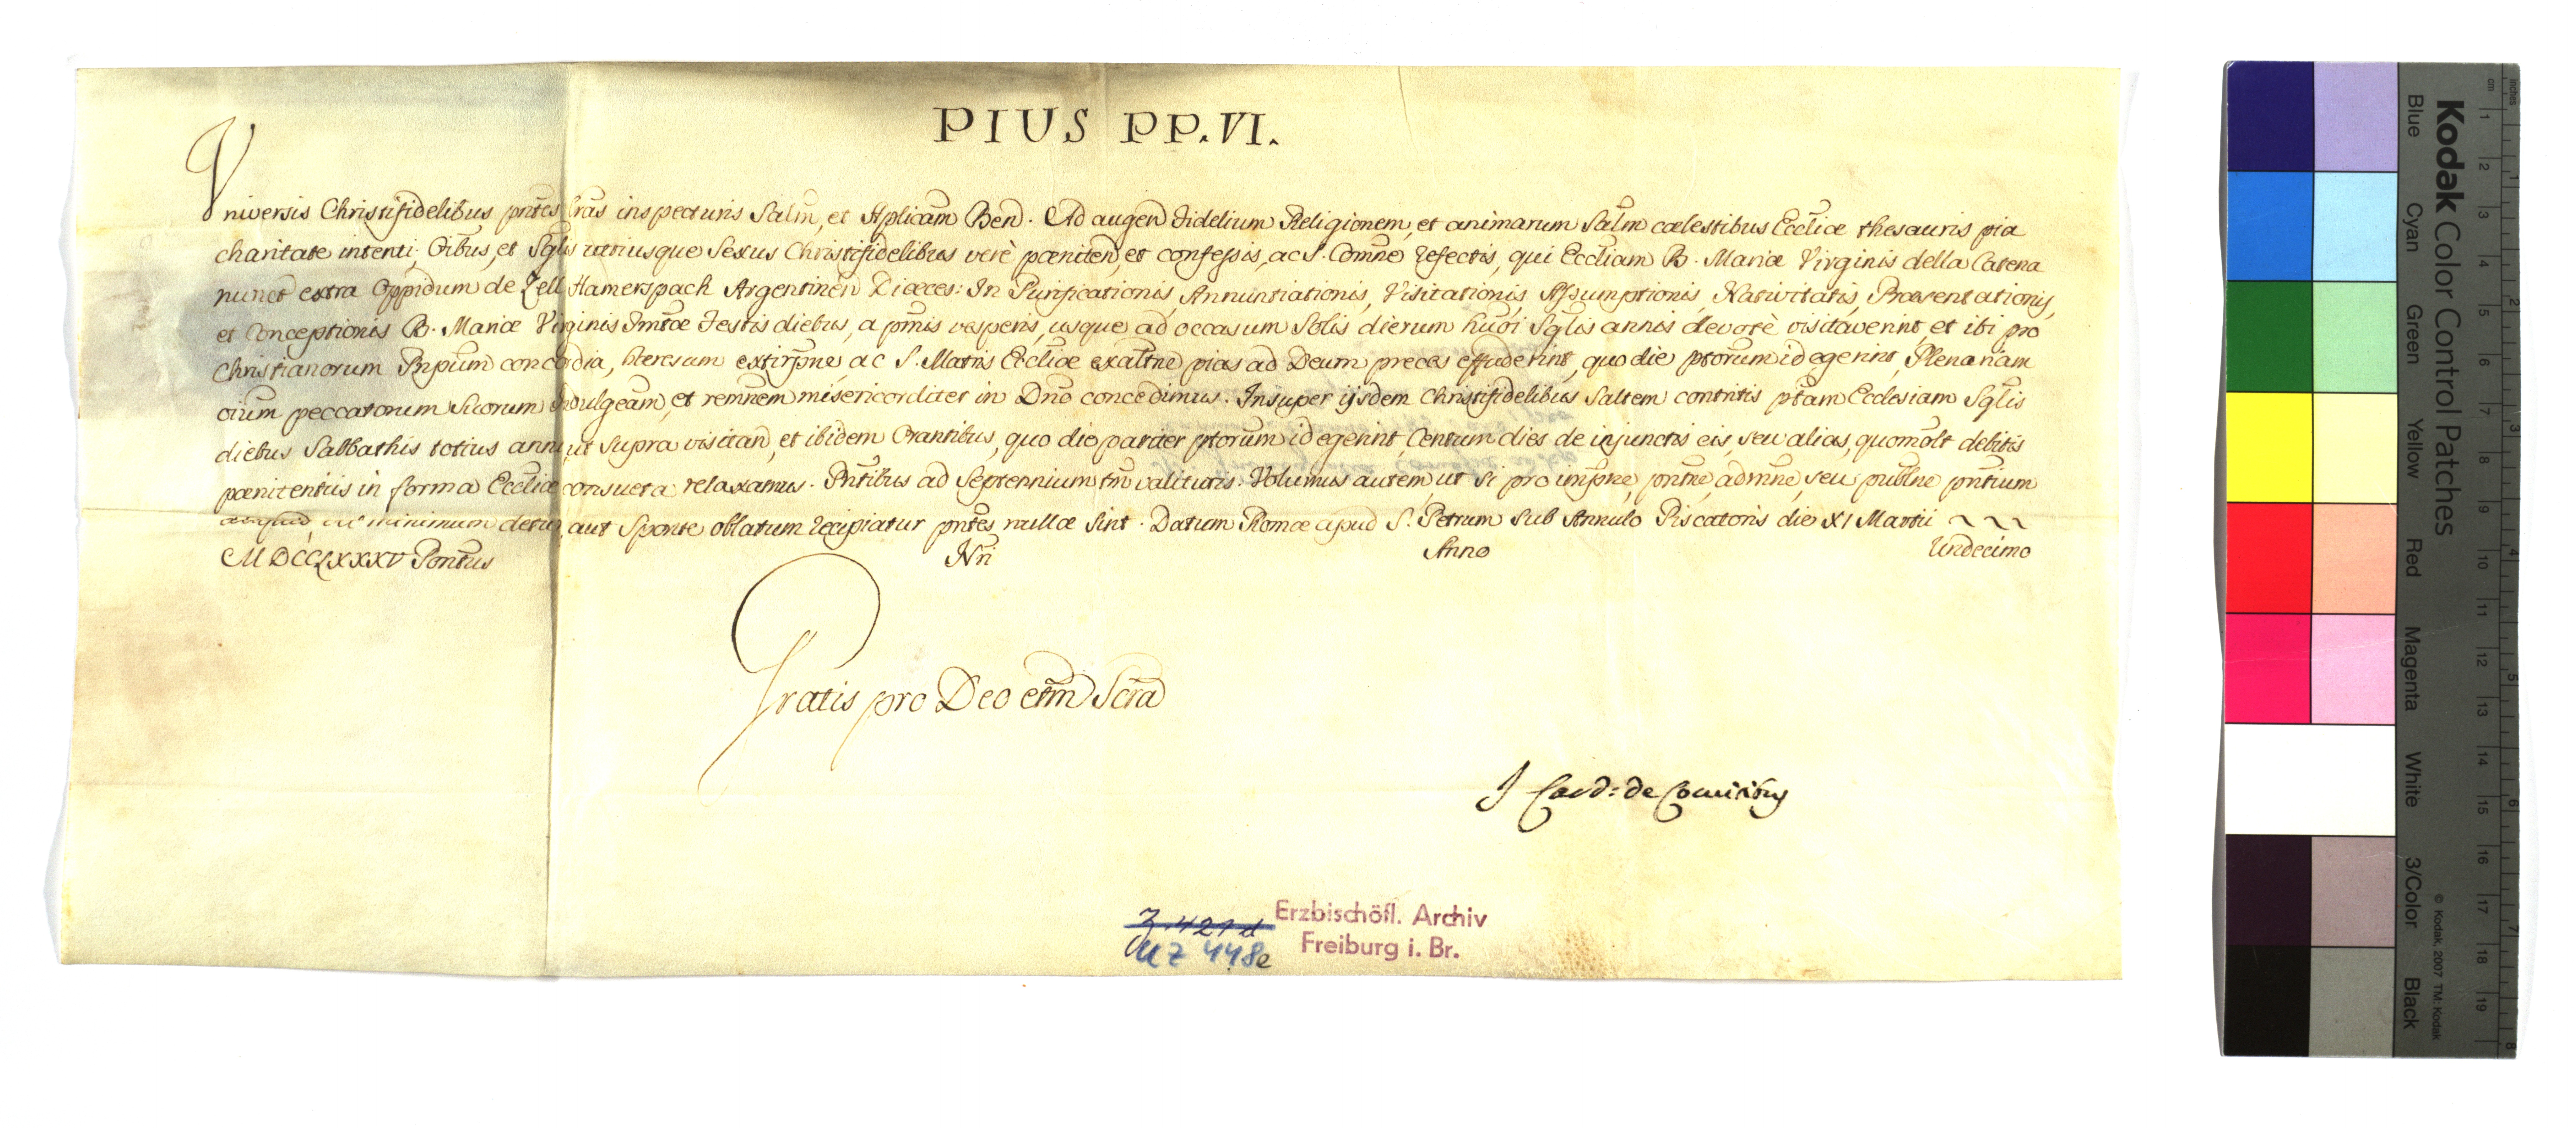 PIUS PP. VI.
Universis Christifidelibus pñtes Lrãs inspecturis Salm̃, et Aplicam̃ Ben̄. Ad augen̄ Fidelium Religionem, et animarum Salm̃ cœlestibus Eccliæ thesauris pia
charitate intenti; Oibus, et Sglis utriusque Sexus Christifidelibus verè pœniten̄, et confessis, ac S. Comñe refectis, qui Eccliam B. Mariæ Virginis della Catena
nunct extra Oppidum de Zell Hamerspach Argentinen̄ Diœces: In Purificationis, Annuntiationis, Visitationis, Assumptionis, Nativitatis, Præsentationis,
et Conceptionis B. Mariæ Virginis Im̃tæ Festis diebus, a pm̃is vesperis, usque ad occasum Solis dierum hum̃oi Sglis annis devotè visitaverint, et ibi pro
Christianorum Pnpum̃ concordia, heresum extirpñe ac S. Matris Eccliæ exaltñe pias ad Deum preces effuderint, quo die ptorum̃ id egerint, Plenariam
oium̃ peccatorum suorum Indulgeam̃, et remñem misericorditer in Dñ̃o concedimus. Insuper ijsdem Christifidelibus saltem contritis ptam̃ Ecclesiam Sglis
diebus Sabbathis totius anni, ut supra visitan̄, et ibidem Orantibus, quo die pariter ptorum̃ id egerint, Centum dies de injunctis eis, seu alias, quomolt debitis
pœnitentiis in forma Eccliæ consueta relaxamus. Pñtibus ad Septennium tm̃ valituris. Volumus autem, ut si pro impñe, pñtñe, admñe, seu publñe pñtium
aliquid vel minimum detur, aut Sponte oblatum recipiatur pñtes nullæ sint. Datum Romæ apud S. Petrum Sub Annulo Piscatoris die XI Martii ~ ~ ~
MDCCLXXXV Pontus̃ Nri Anno Undecimo
Gratis pro Deo etm̃ Scra
J Card: de Comitibus
Z 421 d
UZ 448e
Erzbischöfl. Archiv
Freiburg i. Br.
Kodak Color Control Patches
Blue Cyan Green Yellow Red Magenta White 3/Color Black
© Kodak, 2007 TM: Kodak
cm 1 2 3 4 5 6 7 8 9 10 11 12 13 14 15 16 17 18 19
inches 1 2 3 4 5 6 7 8